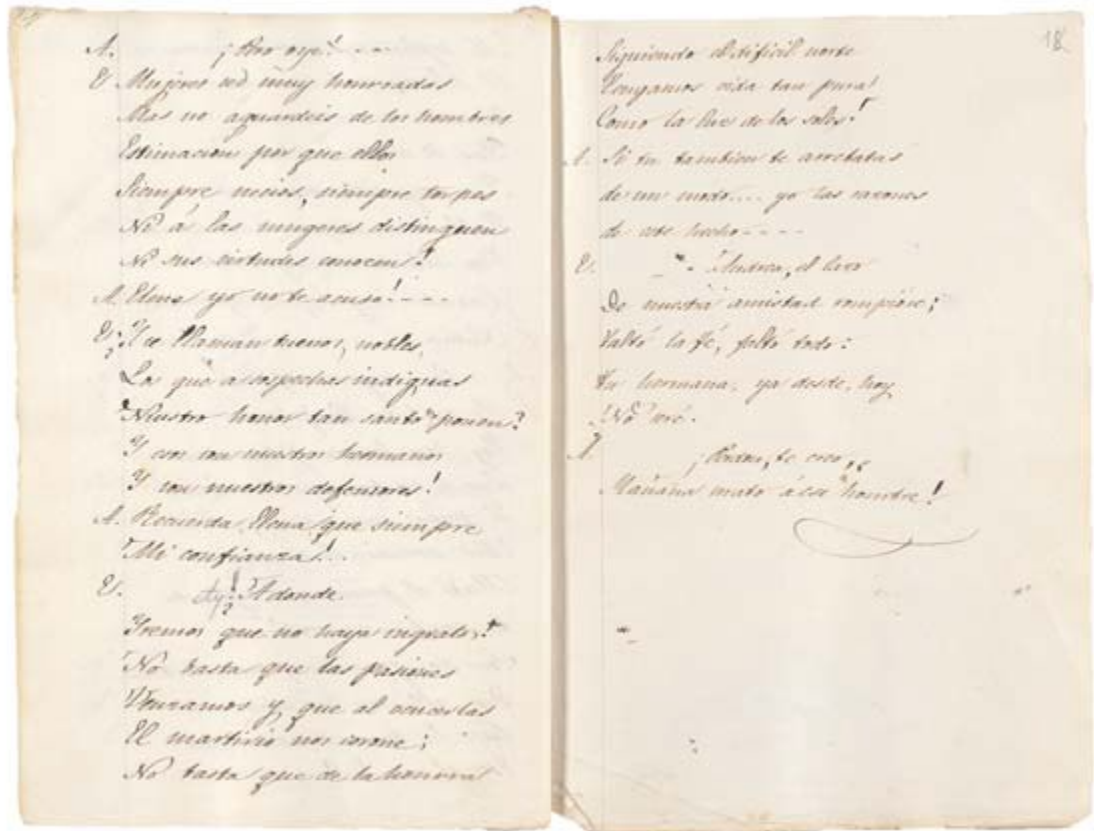 A. ¡Pero oye! - - -
E. Mujeres sed muy honrradas
Mas no aguardeis de los hombres
Estimacion por que ellos
Siempre necios, siempre torpes
Ni á las mugeres distinguen
Ni sus virtudes conocen!
A. Elena yo no te acuso! - - - -
E. ¿Y se llaman buenos, nobles,
Los que a sospechas indignas
Nuestro honor tan santo ponen?
Y son son nuestros hermanos
Y son nuestros defensores!
A. Recuerda Elena que siempre
Mi confianza! . .
E. Ay! ¿Adonde
Iremos que no haya ingratos?
No basta que las pasiones
Venzamos y que al vencerlas
El martirio nos corone;
No basta que de la honrra
18
Siguiendo el dificil norte
Tengamos vida tan pura
Como la luz de los soles!
A. Si tu tambien te arrebatas
de un modo.... yo las razones
de este hecho - - - -
E. Andrea, el lazo
De nuestra amistad rompióse;
Faltó la fé, faltó todo:
Tu hermana, ya desde hoy
No seré.
A. ¡Perdon, te creo,
Mañana mato á ese hombre!